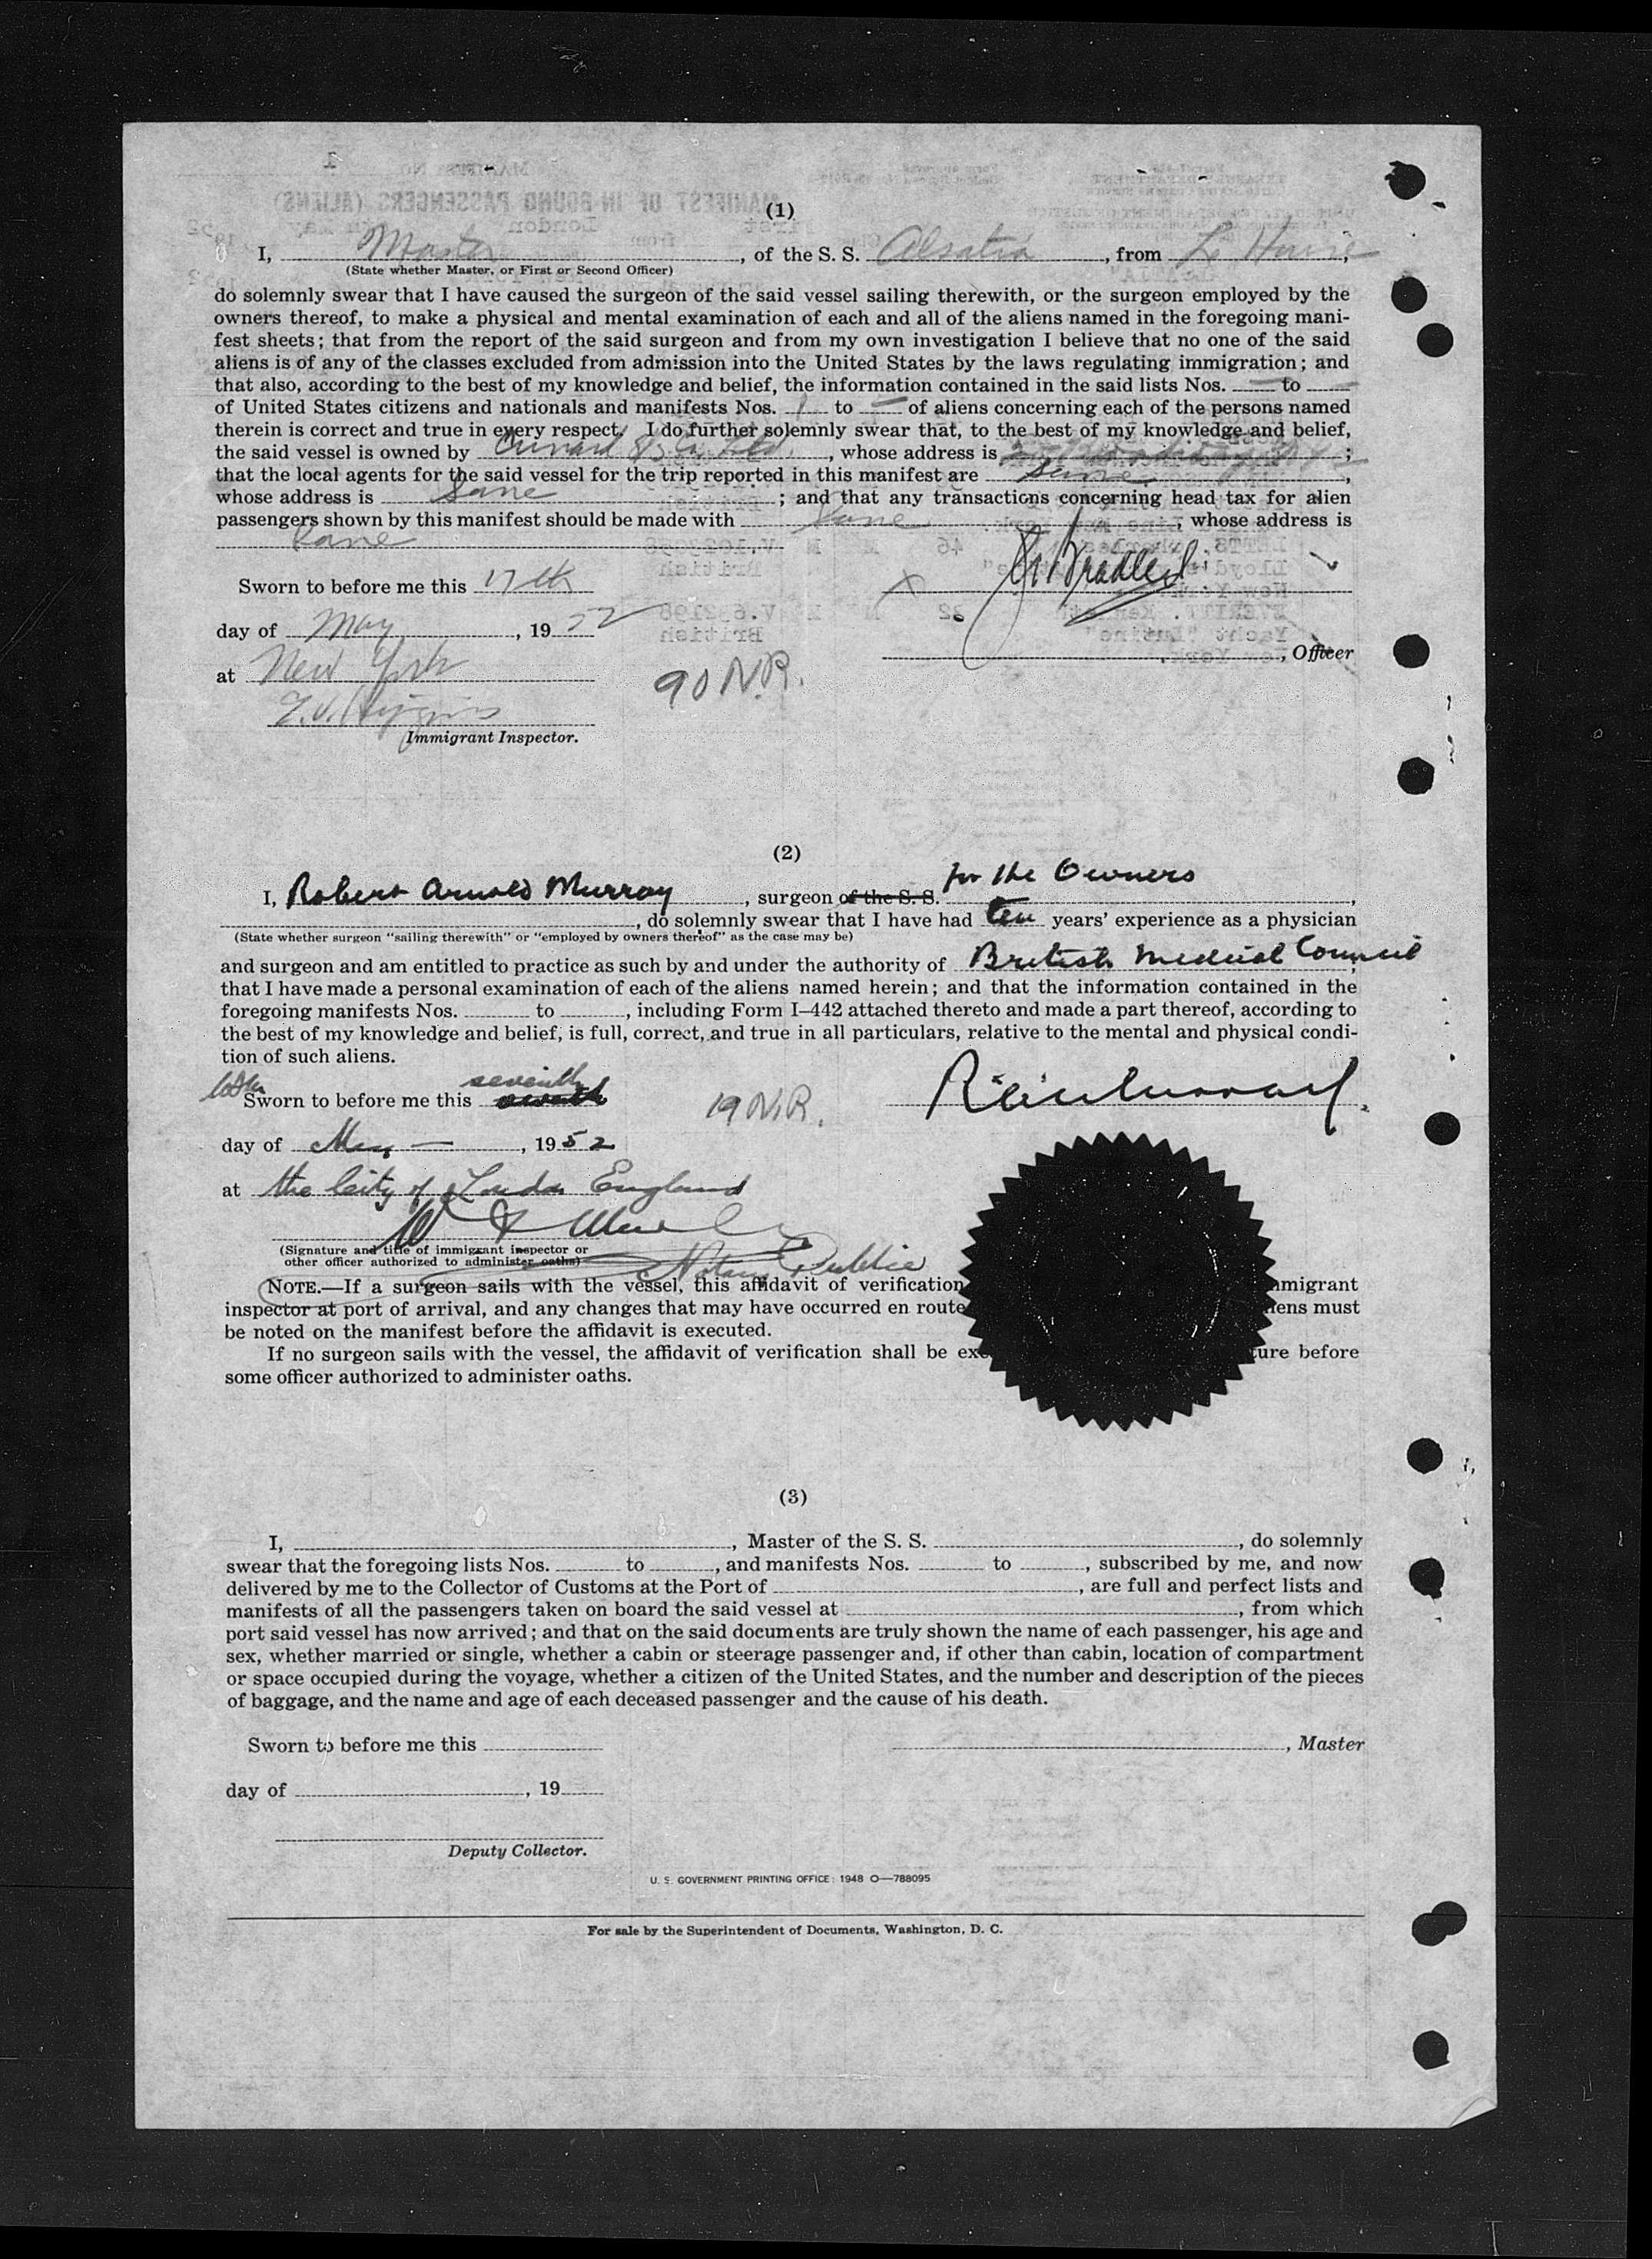 (1)
I, Master, of the S. S. Alsatia, from Le Havre,
(State whether Master, or First or Second Officer)
do solemnly swear that I have caused the surgeon of the said vessel sailing therewith, or the surgeon employed by the
owners thereof, to make a physical and mental examination of each and all of the aliens named in the foregoing mani-
fest sheets; that from the report of the said surgeon and from my own investigation I believe that no one of the said
aliens is of any of the classes excluded from admission into the United States by the laws regulating immigration; and
that also, according to the best of my knowledge and belief, the information contained in the said lists Nos. — to —
of United States citizens and nationals and manifests Nos. 1 to — of aliens concerning each of the persons named
therein is correct and true in every respect. I do further solemnly swear that, to the best of my knowledge and belief,
the said vessel is owned by Cunard S.S. Co. Ltd., whose address is ;
that the local agents for the said vessel for the trip reported in this manifest are Same,
whose address is Same; and that any transactions concerning head tax for alien
passengers shown by this manifest should be made with Same, whose address is
Same
Sworn to before me this 17th
day of May, 1952
X Bradley
, Officer
at New York
90 N.R.
Immigrant Inspector.
(2)
for the Owners
I, Robert Arnold Murray, surgeon of the S. S.,
, do solemnly swear that I have had ten years' experience as a physician
(State whether surgeon "sailing therewith" or "employed by owners thereof" as the case may be)
and surgeon and am entitled to practice as such by and under the authority of British Medical Council,
that I have made a personal examination of each of the aliens named herein; and that the information contained in the
foregoing manifests Nos. to , including Form I–442 attached thereto and made a part thereof, according to
the best of my knowledge and belief, is full, correct, and true in all particulars, relative to the mental and physical condi-
tion of such aliens.
seventh
Sworn to before me this
19 N.R.
day of May —, 1952
at the City of London England
(Signature and title of immigrant inspector or
other officer authorized to administer oaths)
Notary Public
NOTE.—If a surgeon sails with the vessel, this affidavit of verification mmigrant
inspector at port of arrival, and any changes that may have occurred en route iens must
be noted on the manifest before the affidavit is executed.
If no surgeon sails with the vessel, the affidavit of verification shall be exe ture before
some officer authorized to administer oaths.
(3)
I, , Master of the S. S. , do solemnly
swear that the foregoing lists Nos. to , and manifests Nos. to , subscribed by me, and now
delivered by me to the Collector of Customs at the Port of , are full and perfect lists and
manifests of all the passengers taken on board the said vessel at , from which
port said vessel has now arrived; and that on the said documents are truly shown the name of each passenger, his age and
sex, whether married or single, whether a cabin or steerage passenger and, if other than cabin, location of compartment
or space occupied during the voyage, whether a citizen of the United States, and the number and description of the pieces
of baggage, and the name and age of each deceased passenger and the cause of his death.
Sworn to before me this
, Master
day of , 19
Deputy Collector.
U. S. GOVERNMENT PRINTING OFFICE: 1948 O—788095
For sale by the Superintendent of Documents, Washington, D. C.